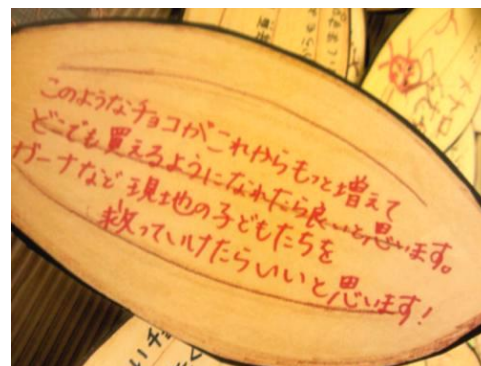 このようなチョコがこれからもっと増えて
どこでも買えるようになれたら良いと思います。
ガーナなど現地の子どもたちを
救っていけたらいいと思います!